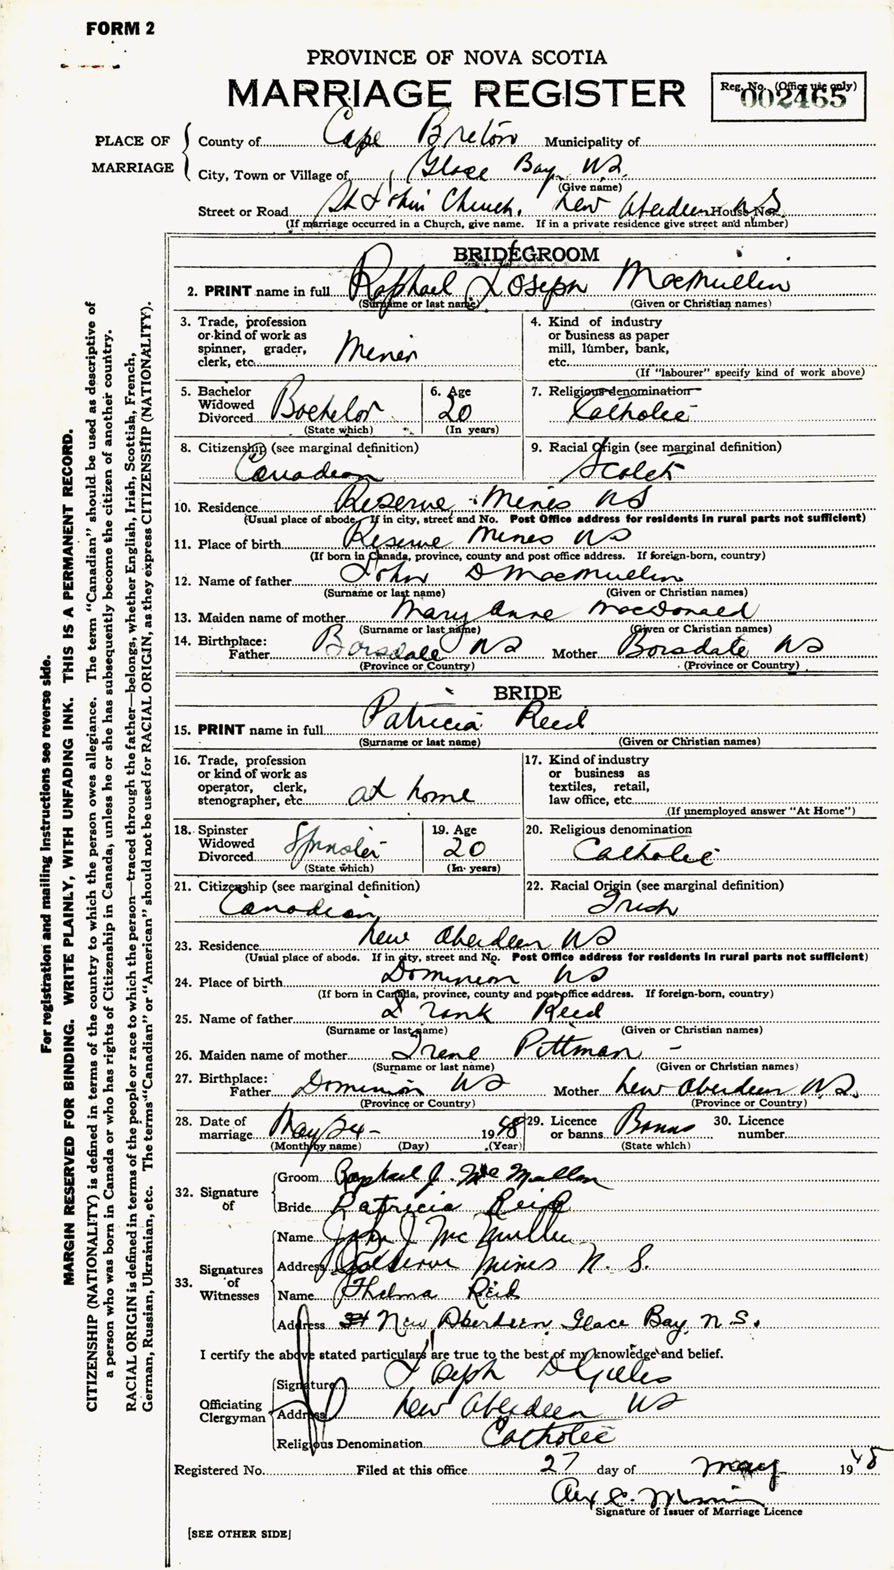 FORM 2
PROVINCE OF NOVA SCOTIA
MARRIAGE REGISTER
Reg. No. (Office use only)
002465
PLACE OF MARRIAGE
County of Cape Breton Municipality of
City, Town or Village of Glace Bay, N.S.
(Give name)
Street or Road St John's Church, New Aberdeen N.S House No.
(If marriage occurred in a Church, give name. If in a private residence give street and number)
BRIDEGROOM
2. PRINT name in full Raphael Joseph MacMullin
(Surname or last name) (Given or Christian names)
3. Trade, profession or kind of work as spinner, grader, clerk, etc. Miner
4. Kind of industry or business as paper mill, lumber, bank, etc.
(If "labourer" specify kind of work above)
5. Bachelor Widowed Divorced Bachelor
(State which)
6. Age 20
(In years)
7. Religious denomination Catholic
8. Citizenship (see marginal definition) Canadian
9. Racial Origin (see marginal definition) Scotch
10. Residence Reserve Mines NS
(Usual place of abode. If in city, street and No. Post Office address for residents in rural parts not sufficient)
11. Place of birth Reserve Mines NS
(If born in Canada, province, county and post office address. If foreign-born, country)
12. Name of father John D MacMullin
(Surname or last name) (Given or Christian names)
13. Maiden name of mother Mary Anne MacDonald
(Surname or last name) (Given or Christian names)
14. Birthplace: Father Boisdale NS Mother Boisdale NS
(Province or Country) (Province or Country)
BRIDE
15. PRINT name in full Patricia Reed
(Surname or last name) (Given or Christian names)
16. Trade, profession or kind of work as operator, clerk, stenographer, etc. at home
17. Kind of industry or business as textiles, retail, law office, etc.
(If unemployed answer "At Home")
18. Spinster Widowed Divorced Spinster
(State which)
19. Age 20
(In years)
20. Religious denomination Catholic
21. Citizenship (see marginal definition) Canadian
22. Racial Origin (see marginal definition) Irish
23. Residence New Aberdeen NS
(Usual place of abode. If in city, street and No. Post Office address for residents in rural parts not sufficient)
24. Place of birth Dominion NS
(If born in Canada, province, county and post office address. If foreign-born, country)
25. Name of father Frank Reed
(Surname or last name) (Given or Christian names)
26. Maiden name of mother Irene Pittman -
(Surname or last name) (Given or Christian names)
27. Birthplace: Father Dominion NS Mother New Aberdeen N.S.
(Province or Country) (Province or Country)
28. Date of marriage May 24 - 1948
(Month by name) (Day) (Year)
29. Licence or banns Banns
(State which)
30. Licence number
32. Signature of
Groom Raphael J. McMullin
Bride Patricia Reid
33. Signatures of Witnesses
Name John J McMullin
Address Reserve Mines N. S.
Name Thelma Reid
Address New Aberdeen, Glace Bay, N.S.
I certify the above stated particulars are true to the best of my knowledge and belief.
Officiating Clergyman
Signature Joseph D Gillis
Address New Aberdeen NS
Religious Denomination Catholic
Registered No. Filed at this office 27 day of May 1948
Signature of Issuer of Marriage Licence
[SEE OTHER SIDE]
For registration and mailing instructions see reverse side.
MARGIN RESERVED FOR BINDING. WRITE PLAINLY, WITH UNFADING INK. THIS IS A PERMANENT RECORD.
CITIZENSHIP (NATIONALITY) is defined in terms of the country to which the person owes allegiance. The term "Canadian" should be used as descriptive of
a person who was born in Canada or who has rights of Citizenship in Canada, unless he or she has subsequently become the citizen of another country.
RACIAL ORIGIN is defined in terms of the people or race to which the person—traced through the father—belongs, whether English, Irish, Scottish, French,
German, Russian, Ukrainian, etc. The terms "Canadian" or "American" should not be used for RACIAL ORIGIN, as they express CITIZENSHIP (NATIONALITY).